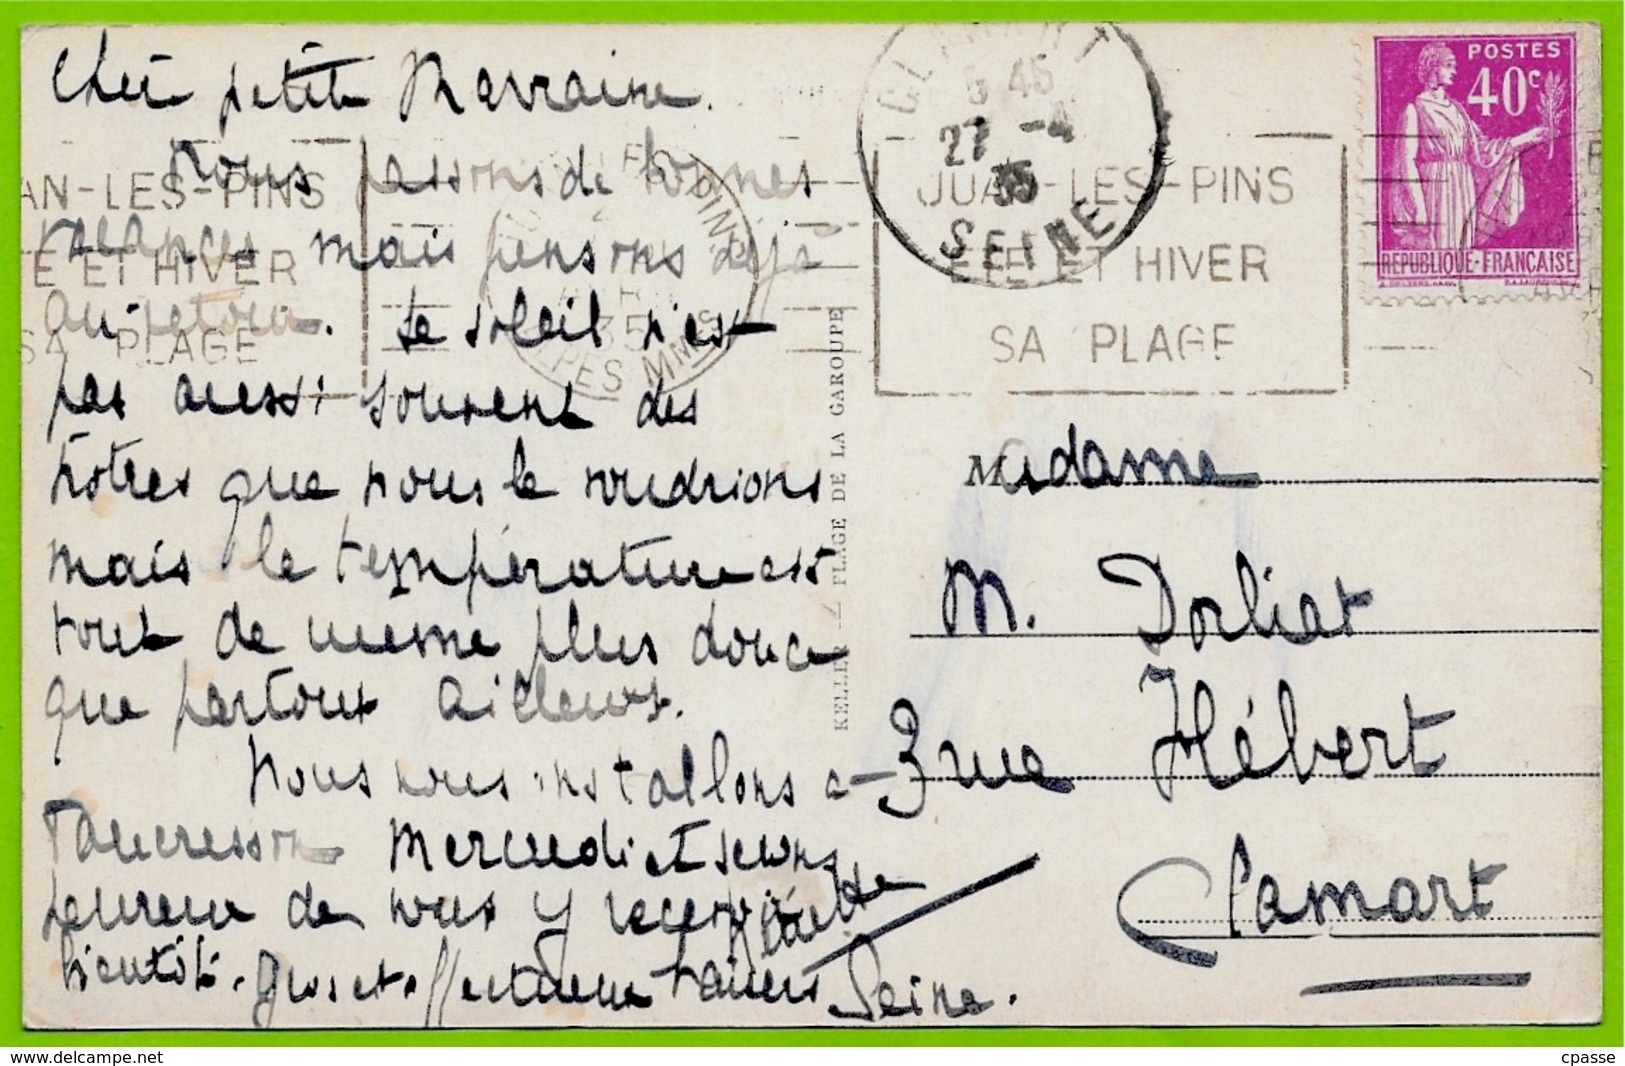 Cher petite Marraine.
Nous passons de bonnes
vacances mais pensons déjà
au retour. Le soleil n'est
pas aussi souvent des
nôtres que nous le voudrions
mais la température est
tout de même plus douce
que partout ailleurs.
Nous nous installons a
Vaucresson Mercredi et serons
heureux de vous y recevoir
bientôt. Gros et affectueux baisers
KELLER - PLAGE DE LA GAROUPE
CLAMART
5 45
27 -4
35
SEINE
JUAN-LES-PINS
ALPES MMES
35
AN-LES-PINS
E ET HIVER
SA PLAGE
JUAN-LES-PINS
ETE ET HIVER
SA PLAGE
POSTES
40c
REPUBLIQUE-FRANÇAISE
Madame
M. Dorliat
3 rue Hébert
Clamart
Seine.
delcampe.net
cpasse